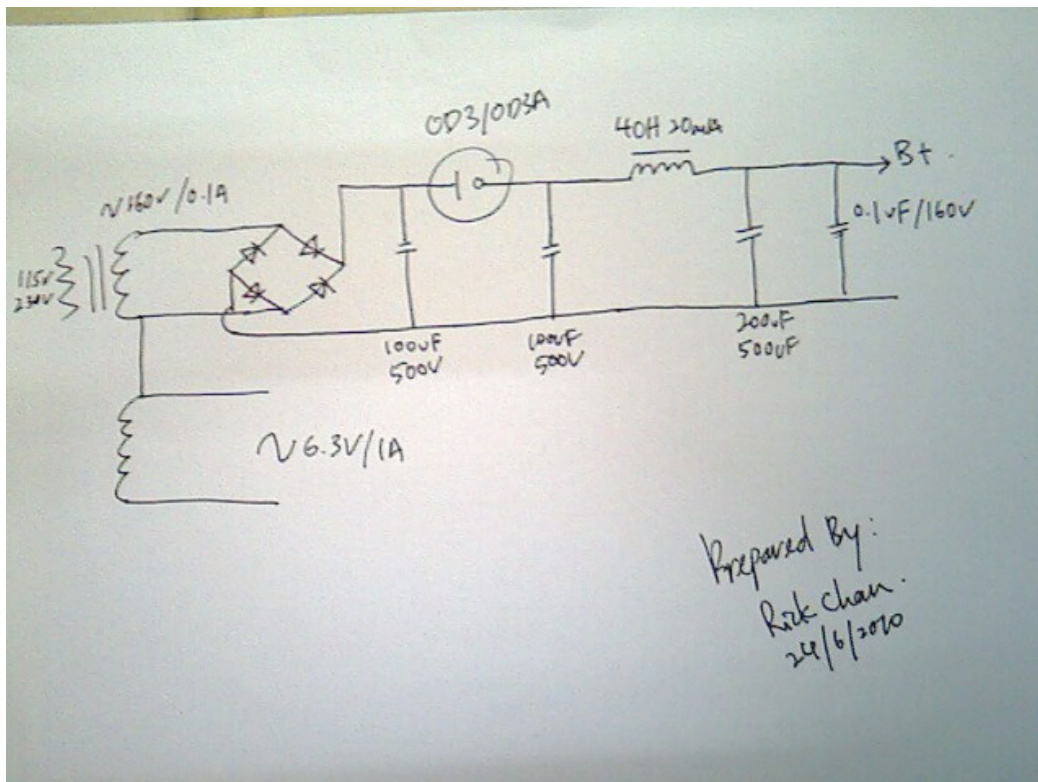 OD3/OD3A
40H 20mA
B+.
~160V/0.1A
0.1uF/160V
115V
230V
100uF
500V
100uF
500V
200uF
500uF
~6.3V/1A
Prepared By:
Rick Chan.
24/6/2010